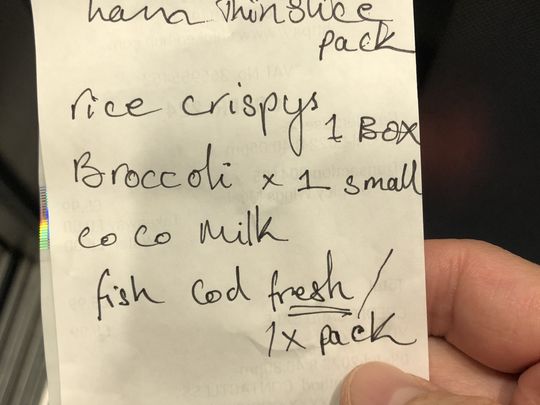 thin slice
pack
rice crispys
1 BOX
Broccoli x 1 small
co co milk
fish Cod fresh /
1x pack